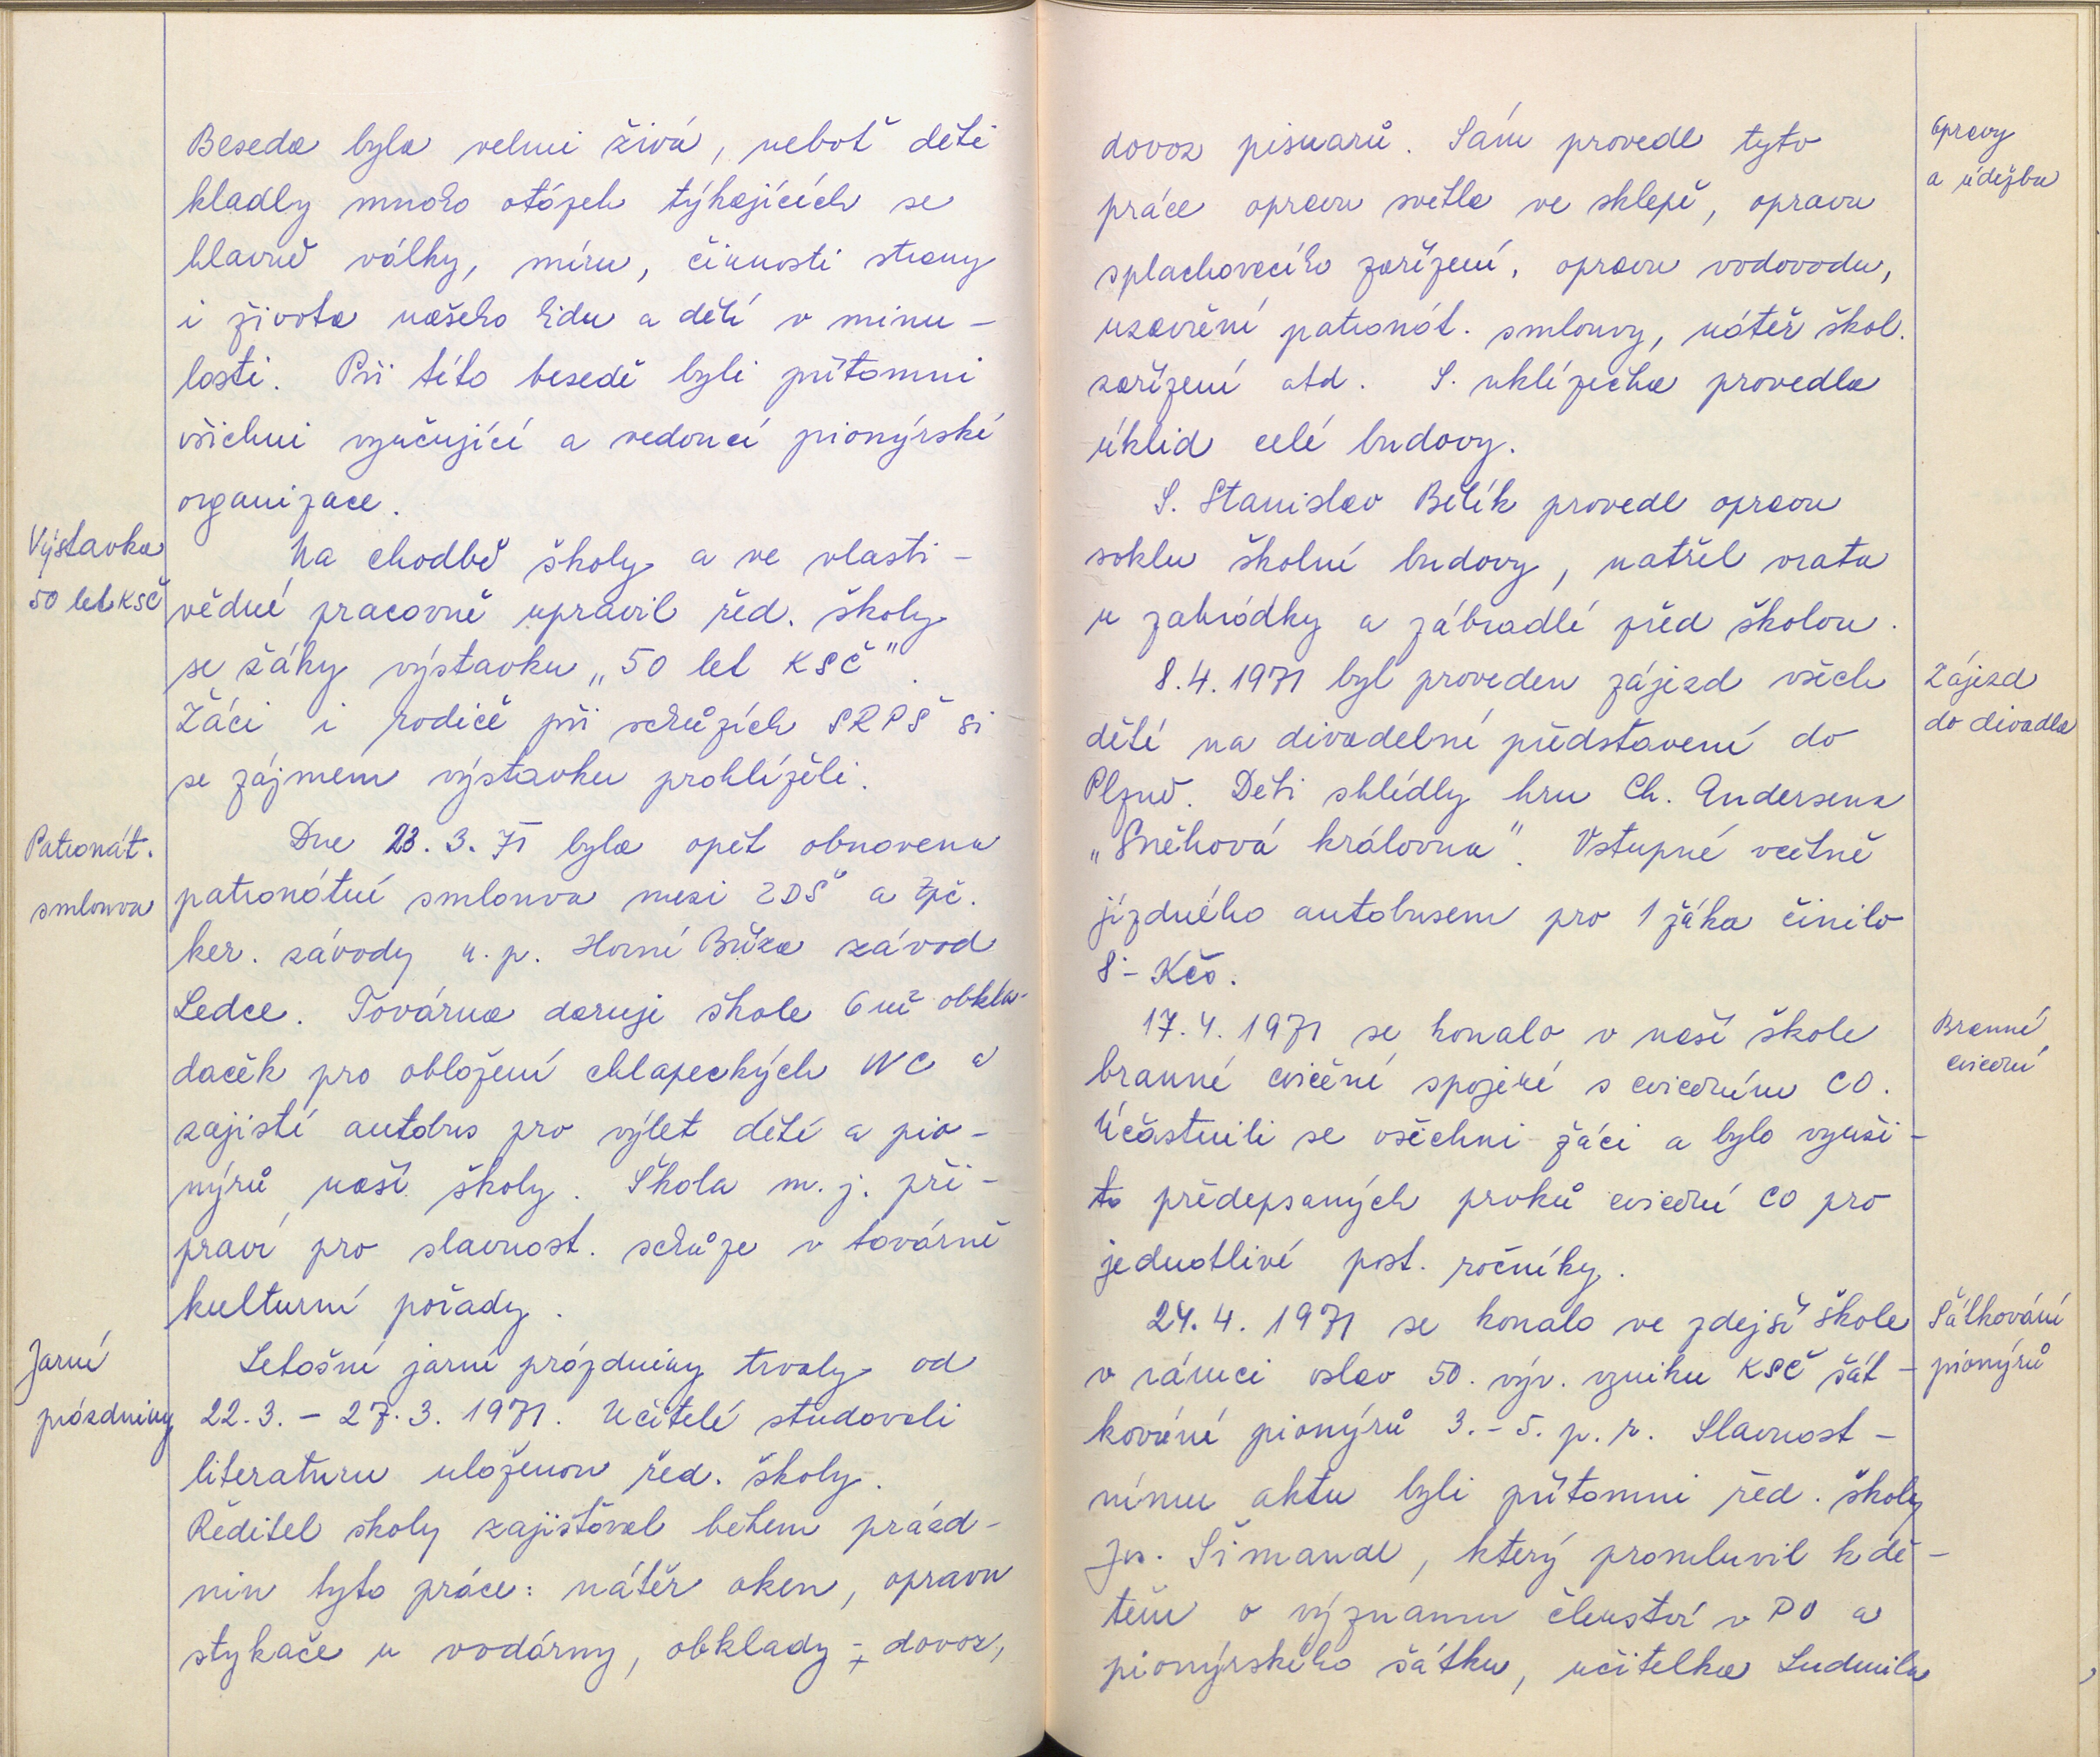 Beseda byla velmi živá, neboť děti
kladly mnoho otázek týkajících se
hlavně války, míru, činnosti strany
i života našeho lidu a dětí v minu-
losti. Při této besedě byli přítomni
všichni vyučující a vedoucí pionýrské
organizace.
Výstavka
50 let KSČ
Na chodbě školy a ve vlasti-
vědné pracovně upravil řed. školy
se žáky výstavku „50 let KSČ".
Žáci i rodiče při schůzích SRPŠ si
se zájmem výstavku prohlíželi.
Patronát.
smlouva
Dne 23. 3. 71 byla opět obnovena
patronátní smlouva mezi ZDŠ a Zpč.
ker. závody n. p. Horní Bříza závod
Ledce. Továrna daruje škole 6 m² obkla-
daček pro obložení chlapeckých WC a
zajistí autobus pro výlet dětí a pio-
nýrů naší školy. Škola m. j. při-
praví pro slavnost. schůze v továrně
kulturní pořady.
Jarní
prázdniny
Letošní jarní prázdniny trvaly od
22. 3. - 27. 3. 1971. Učitelé studovali
literaturu uloženou řed. školy.
Ředitel školy zajišťoval během prázd-
nin tyto práce: nátěr oken, opravu
stykače u vodárny, obklady - dovoz,
dovoz pisuarů. Sám provedl tyto
práce opravu světla ve sklepě, opravu
splachovacího zařízení, opravu vodovodu,
uzavření patronát. smlouvy, nátěr škol.
zařízení atd. S. uklízečka provedla
úklid celé budovy.
Opravy
a údržba
S. Stanislav Bělík provedl opravu
soklu školní budovy, natřel vrata
u zahrádky a zábradlí před školou.
8. 4. 1971 byl proveden zájezd všech
dětí na divadelní představení do
Plzně. Děti shlédly hru Ch. Andersena
„Sněhová královna". Vstupné včetně
jízdného autobusem pro 1 žáka činilo
8,- Kčs.
Zájezd
do divadla
17. 4. 1971 se konalo v naší škole
branné cvičení spojené s cvičením CO.
Účastnili se všichni žáci a bylo využi-
to předepsaných prvků cvičení CO pro
jednotlivé post. ročníky.
Branné
cvičení
24. 4. 1971 se konalo ve zdejší škole
v rámci oslav 50. výr. vzniku KSČ šát-
kování pionýrů 3. - 5. p. r. Slavnost-
nímu aktu byli přítomni řed. školy
Jos. Šimandl, který promluvil k dě-
tem o významu členství v PO a
pionýrského šátku, učitelka Ludmila
Šátkování
pionýrů